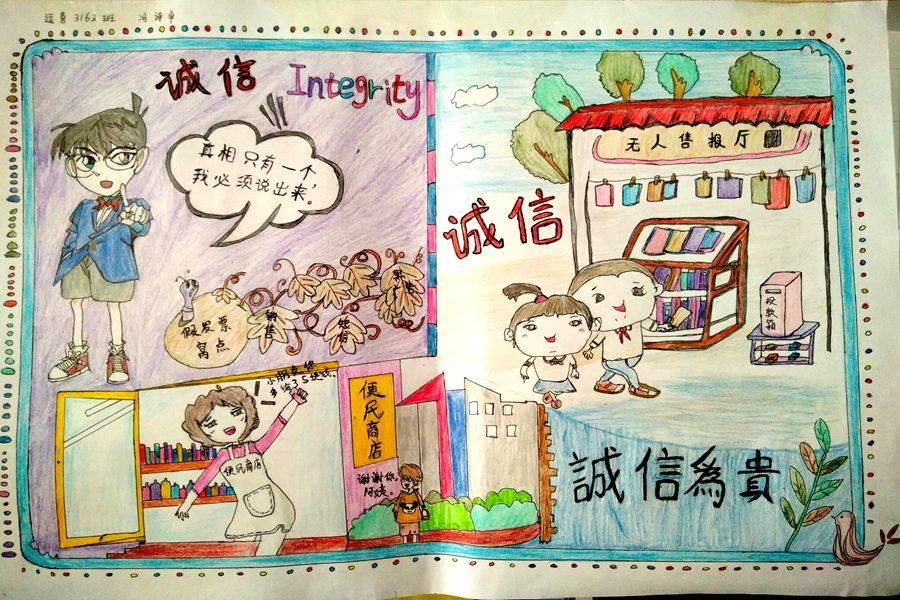 3163班
诚信 Integrity
真相只有一个,
我必须说出来。
假发票
窝点
销售
多给了5块钱。
便民商店
便民商店
谢谢你,
阿姨。
无人售报厅
诚信
投款箱
誠信為貴